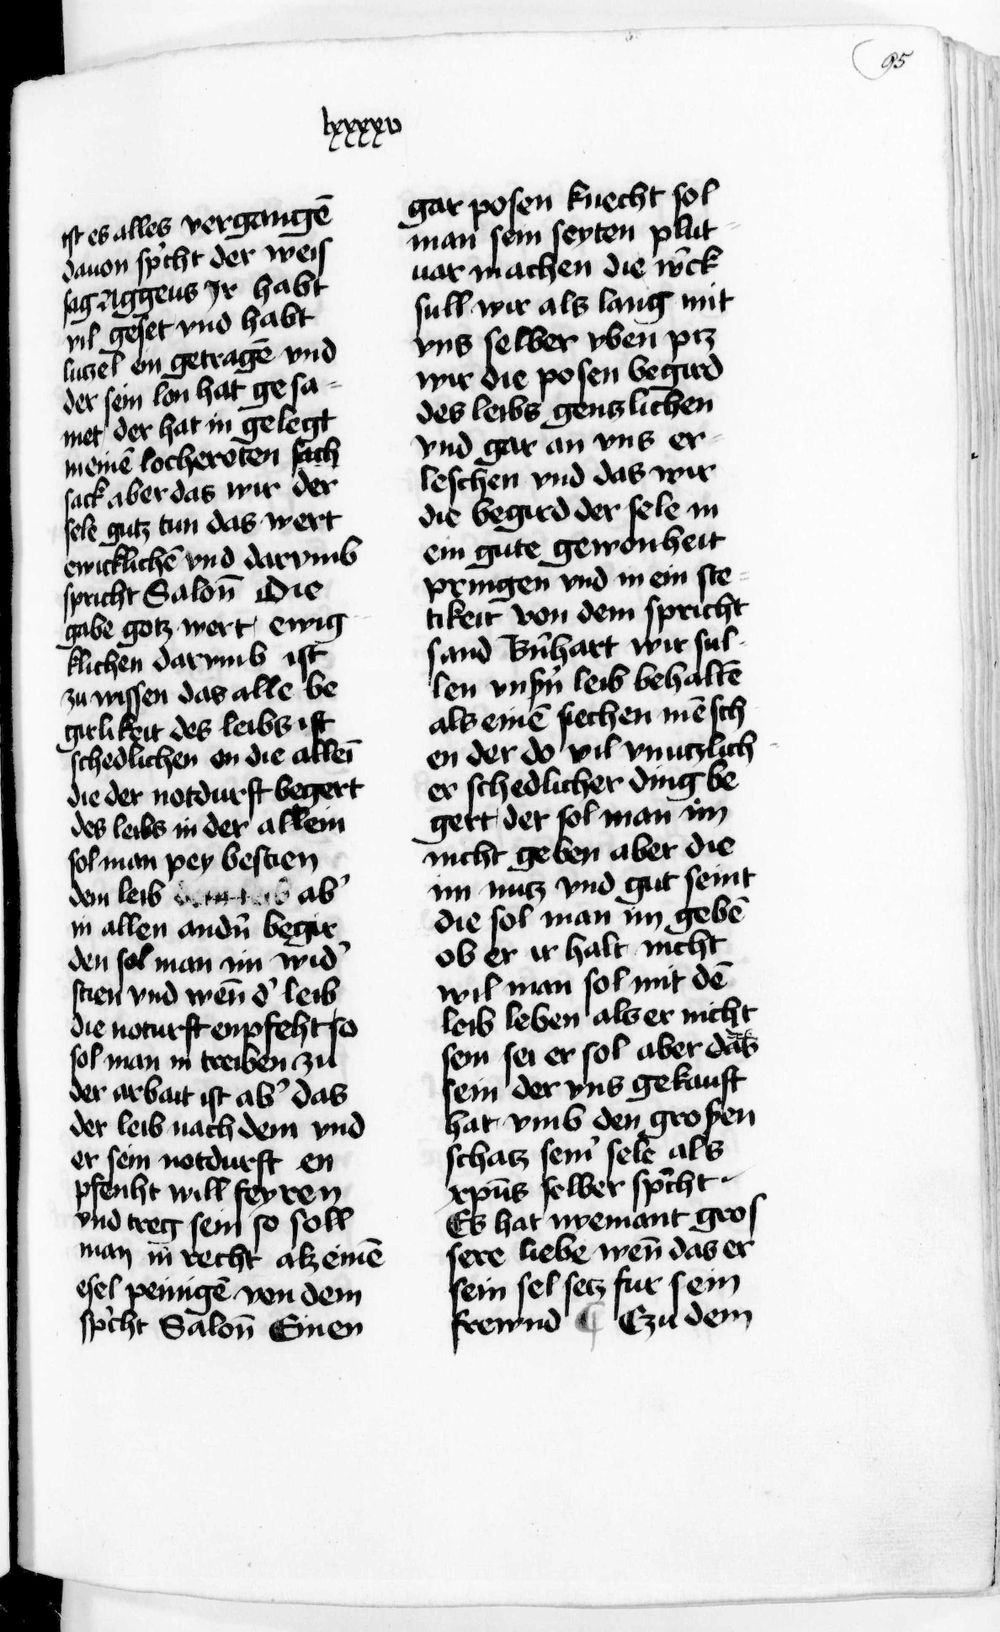 95
lxxxxv
ist es alles vergangē
dauon sp̓cht der weis
sag Aggeus Jr habt
vil geset vnd habt
lutzel ein getragē vnd
der sein lon hat gesa=
met der hat in gelegt
meinē locheroten sach
sack aber das wir der
sele gutz tun das wert
ewicklichē vnd darvmb
spricht Salon̄ Die
gabe gotz wert ewig
klichen darvmb ist
zu wissen das alle be
girlikeit des leibs ist
schedlichen on die alleī
die der notdurft begert
des leibs in der allein
sol man pey bestien
dem leib dem leib ab̓
in allen andn̄ begir
den sol man im wid̓
stien vnd wen̄ d̓ leib
die noturft enpfeht so
sol man in treiben zu
der arbait ist ab̓ das
der leib nach dem vnd
er sein notdurft en
pfenht will feyren
vnd treg sein so soll
man in̄ recht alz einē
esel peinigē von dem
sp̓cht Salon̄ Einen
gar posen knecht sol
man sein seyten plut=
uar machen die w̓ck
sull wir als lang mit
vns selber vben ptz
wir die posen begird
des leibs gentzlichen
vnd gar an vns er=
leschen vnd das wir
die begird der sele in
ein gute gewonheit
pringen vnd in ein ste=
tikeit von dem spricht
sand Bn̄hart wir sul=
len vnsn̄ leib behaltē
als einē siechen mēsch
en der do vil vnnutzlich=
er schedlicher ding be
gert der sol man im
nicht geben aber die
im nutz vnd gut seint
die sol man im gebē
ob er ir halt nicht
wil man sol mit dē
leib leben als er nicht
sein sei er sol aber das
sein der vns gekauft
hat vmb den grossen
schatz sein̓ sele als
xp̄us selber sp̓cht
Es hat nyemant gros
sere liebe wen̄ das er
sein sel setz fur sein
frewnd ¶ Czu dem